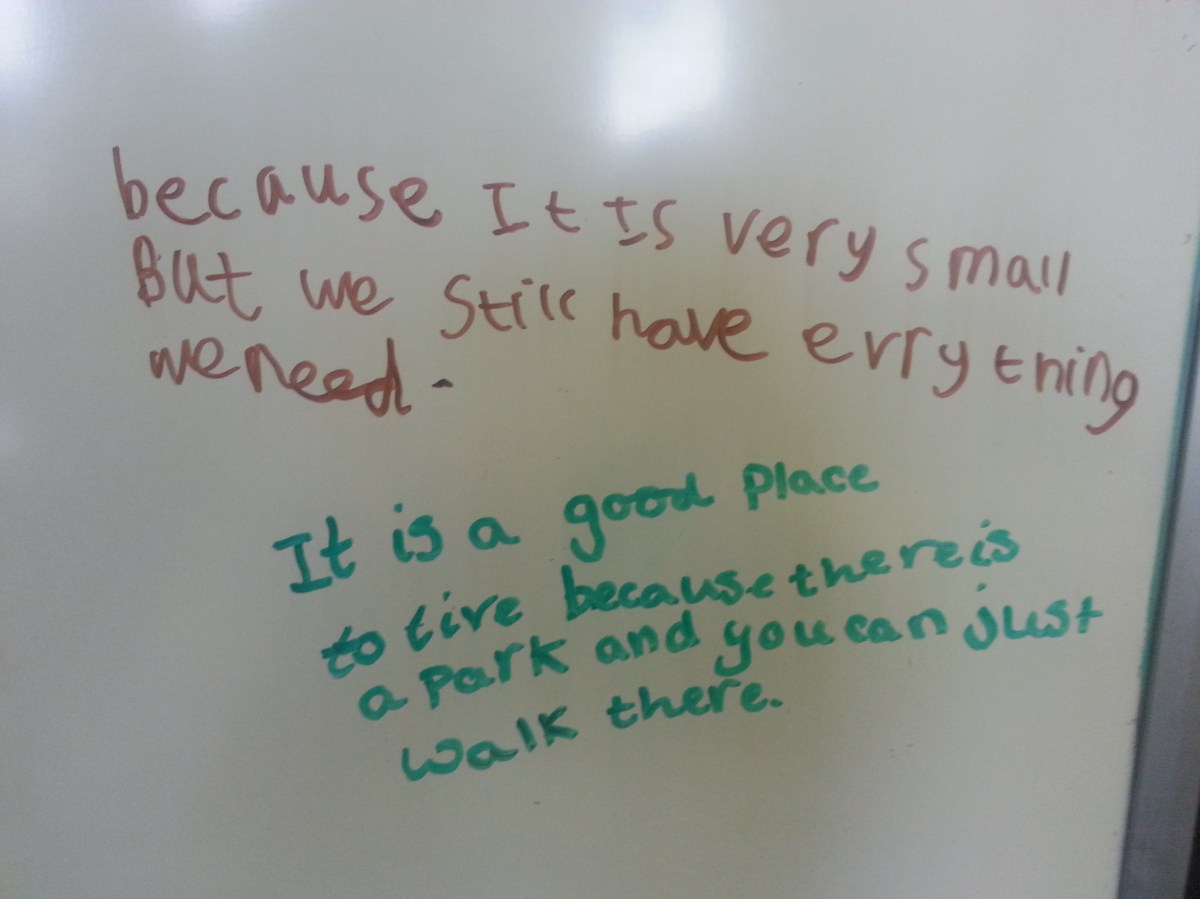 because It Is very small
But we still have errything
we need.
It is a good place
to live because there is
a park and you can just
walk there.